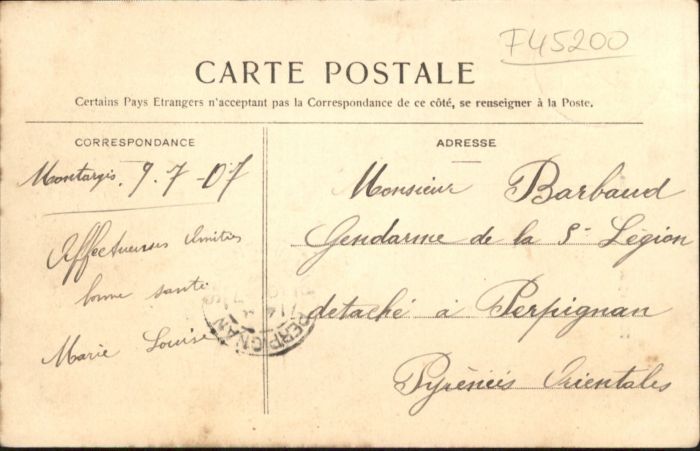 F45200
CARTE POSTALE
Certains Pays Etrangers n'acceptent pas la Correspondance de ce côté, se renseigner à la Poste.
CORRESPONDANCE
Montargis. 9.7-07
Affectueuses Amitiés
bonne santé
Marie Louise
ADRESSE
Monsieur Barbaud
Gendarme de la 5e Légion
detaché à Perpignan
Pyrénées Orientales
PERPIGNAN